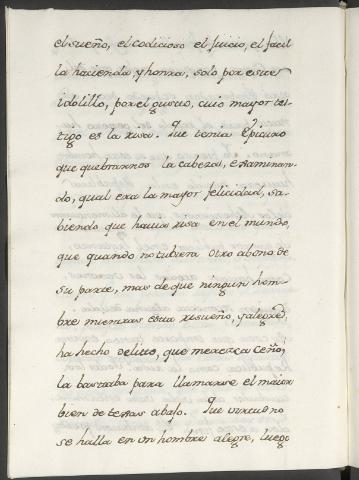 el sueño, el codicioso el juicio, el facil
la hacienda y honra, solo por este
idolillo, por el gusto, cuio mayor tes-
tigo es la risa. Que tenia Epicuro
que quebrarnos la cabeza, examinan-
do, qual era la mayor felicidad, sa-
biendo que havia risa en el mundo,
que quando no tubiera otro abono de
su parte, mas de que ningun hom-
bre mientras esta risueño, y alegre,
ha hecho delito, que merezca ceño,
la bastaba para llamarse el maior
bien de tejas abajo. Que virtud no
se halla en un hombre alegre, luego